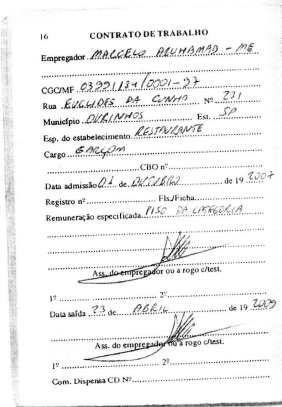 16 CONTRATO DE TRABALHO
Empregador MARCELO ABUHAMAD - ME
CGC/MF 03991184/0001-97
Rua EUCLIDES DA CUNHA Nº 231
Município OURINHOS Est. SP
Esp. do estabelecimento RESTAURANTE
Cargo GARÇOM
CBO nº
Data admissão 01 de OUTUBRO de 19 2007
Registro nº Fls./Ficha
Remuneração especificada PISO DA CATEGORIA
Ass. do empregador ou a rogo c/test.
1º 2º
Data saída 23 de ABRIL de 19 2009
Ass. do empregador ou a rogo c/test.
1º 2º
Com. Dispensa CD Nº